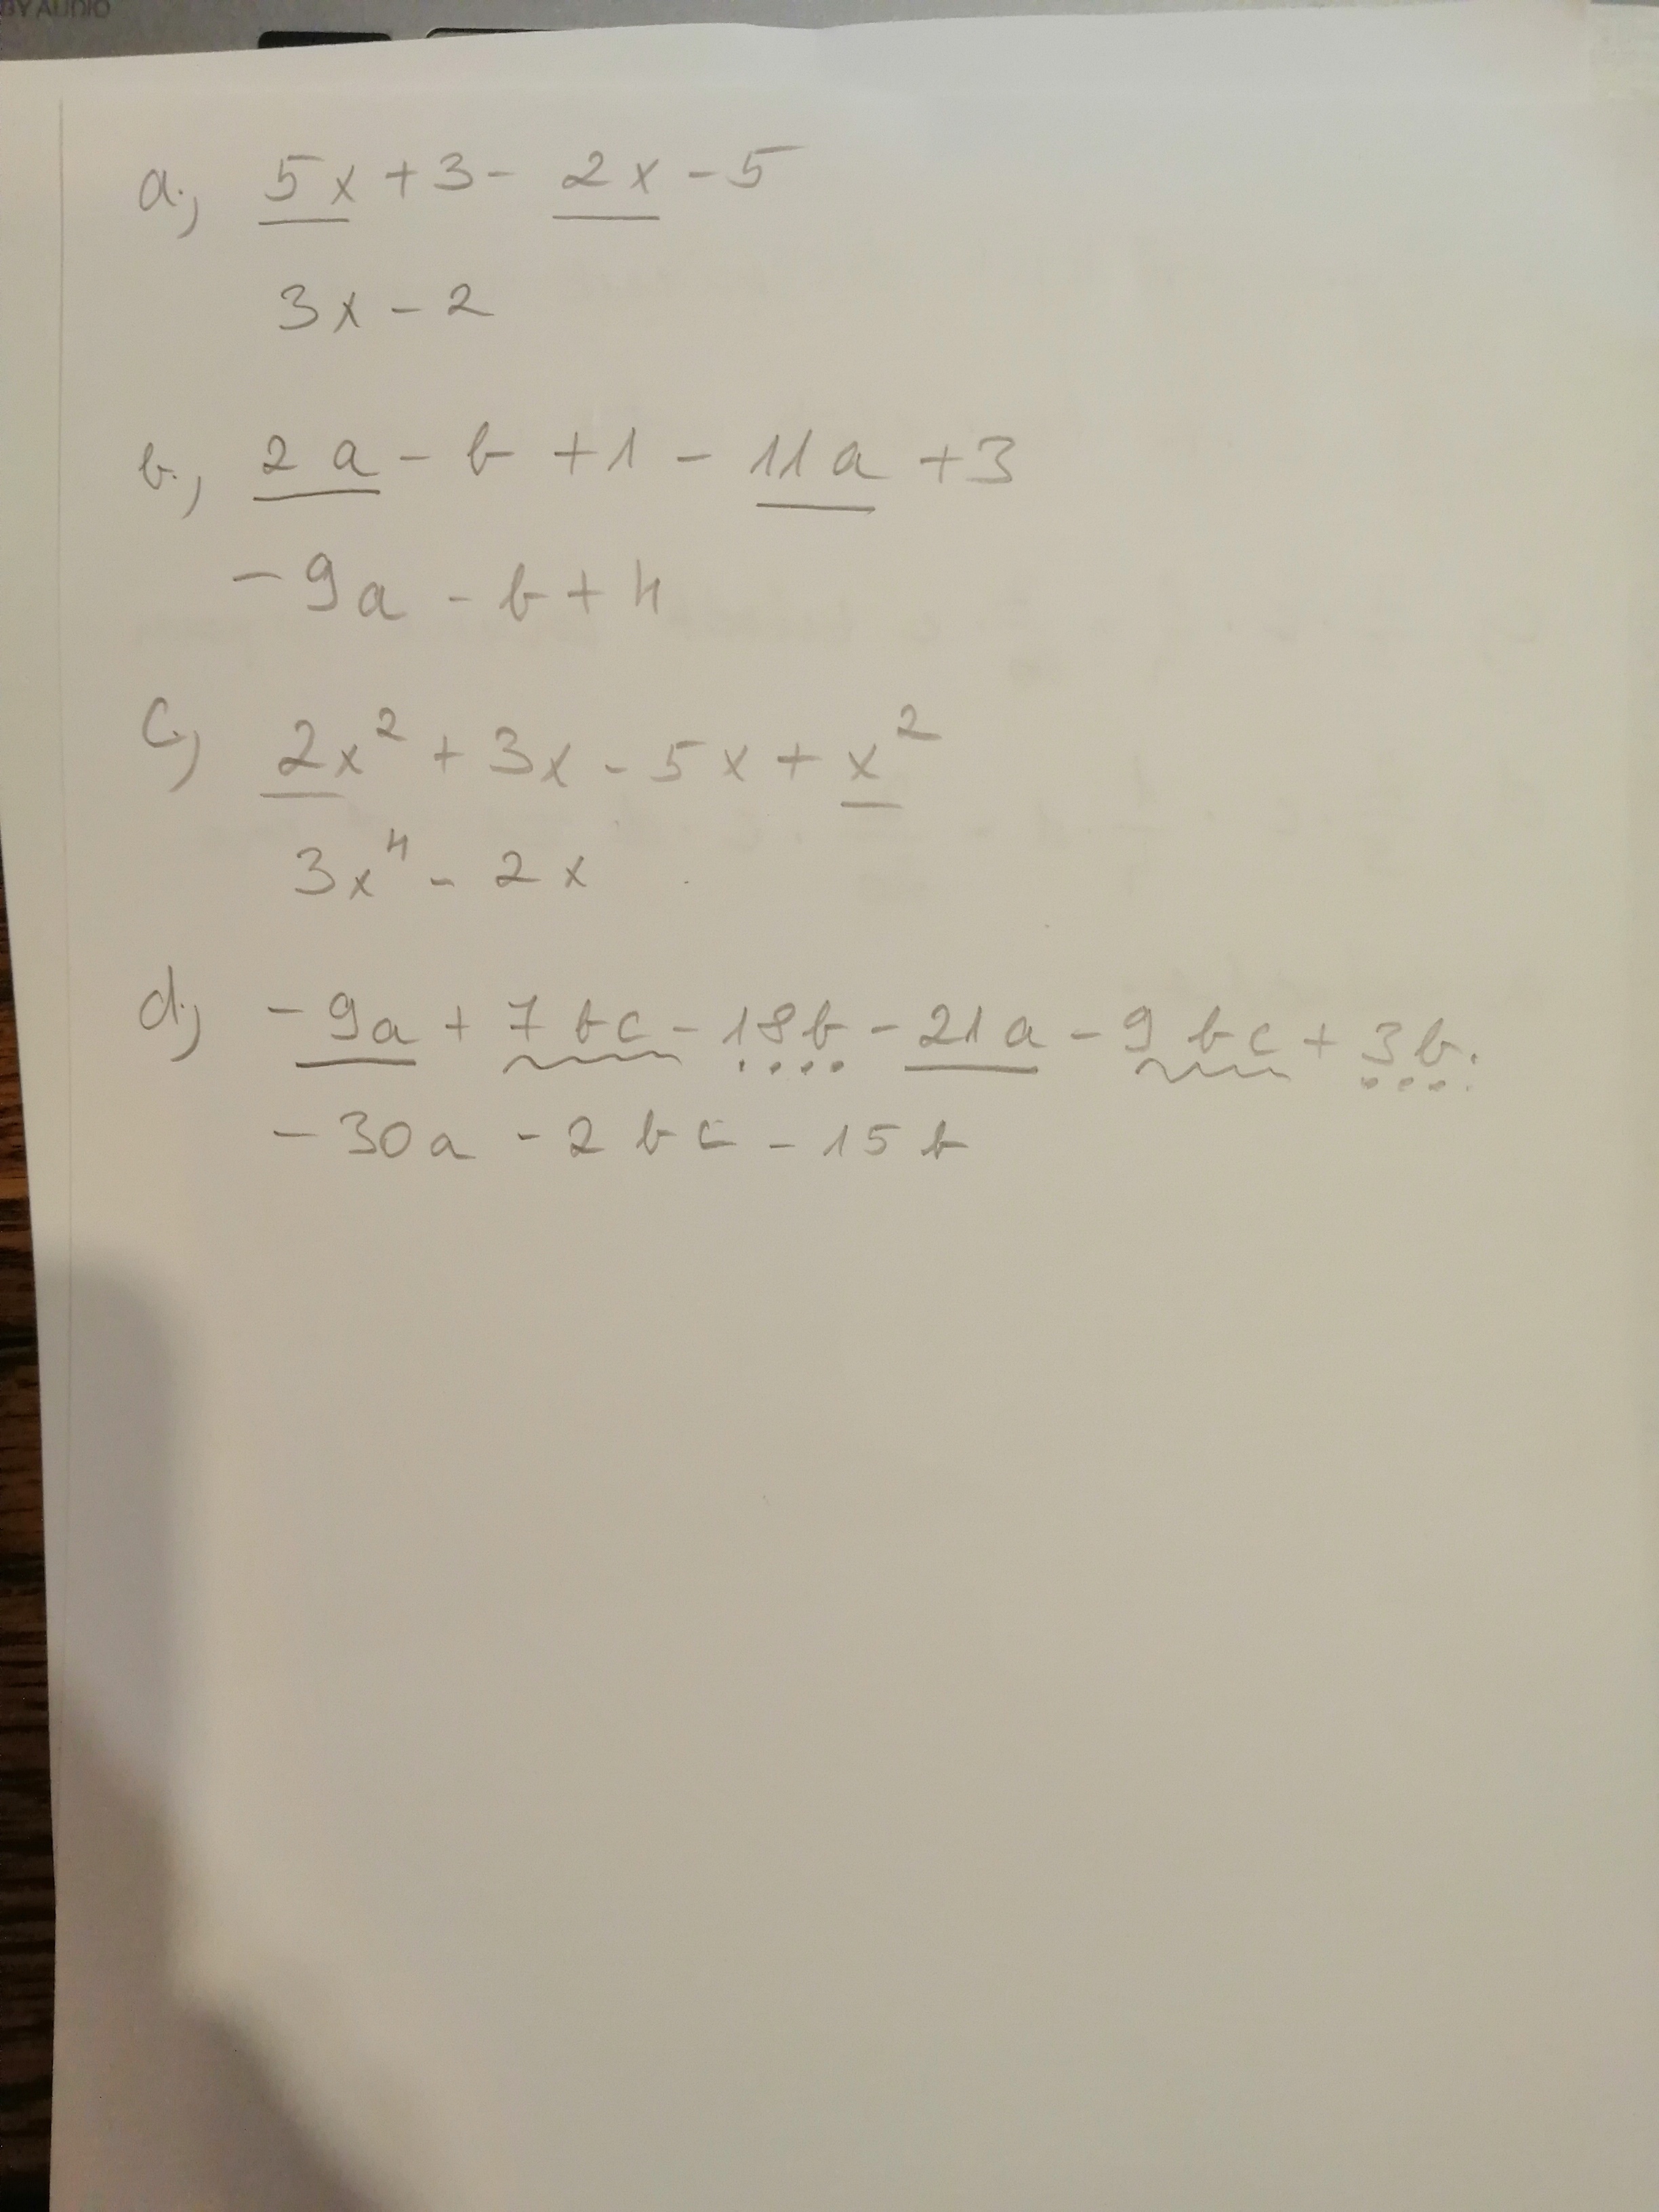 BY AUDIO
a.) 5x + 3 - 2x - 5
3x - 2
b.) 2a - b + 1 - 11a + 3
-9a - b + 4
c.) 2x² + 3x - 5x + x²
3x⁴ - 2x
d.) -9a + 7bc - 18b - 21a - 9bc + 3b.
-30a - 2bc - 15b